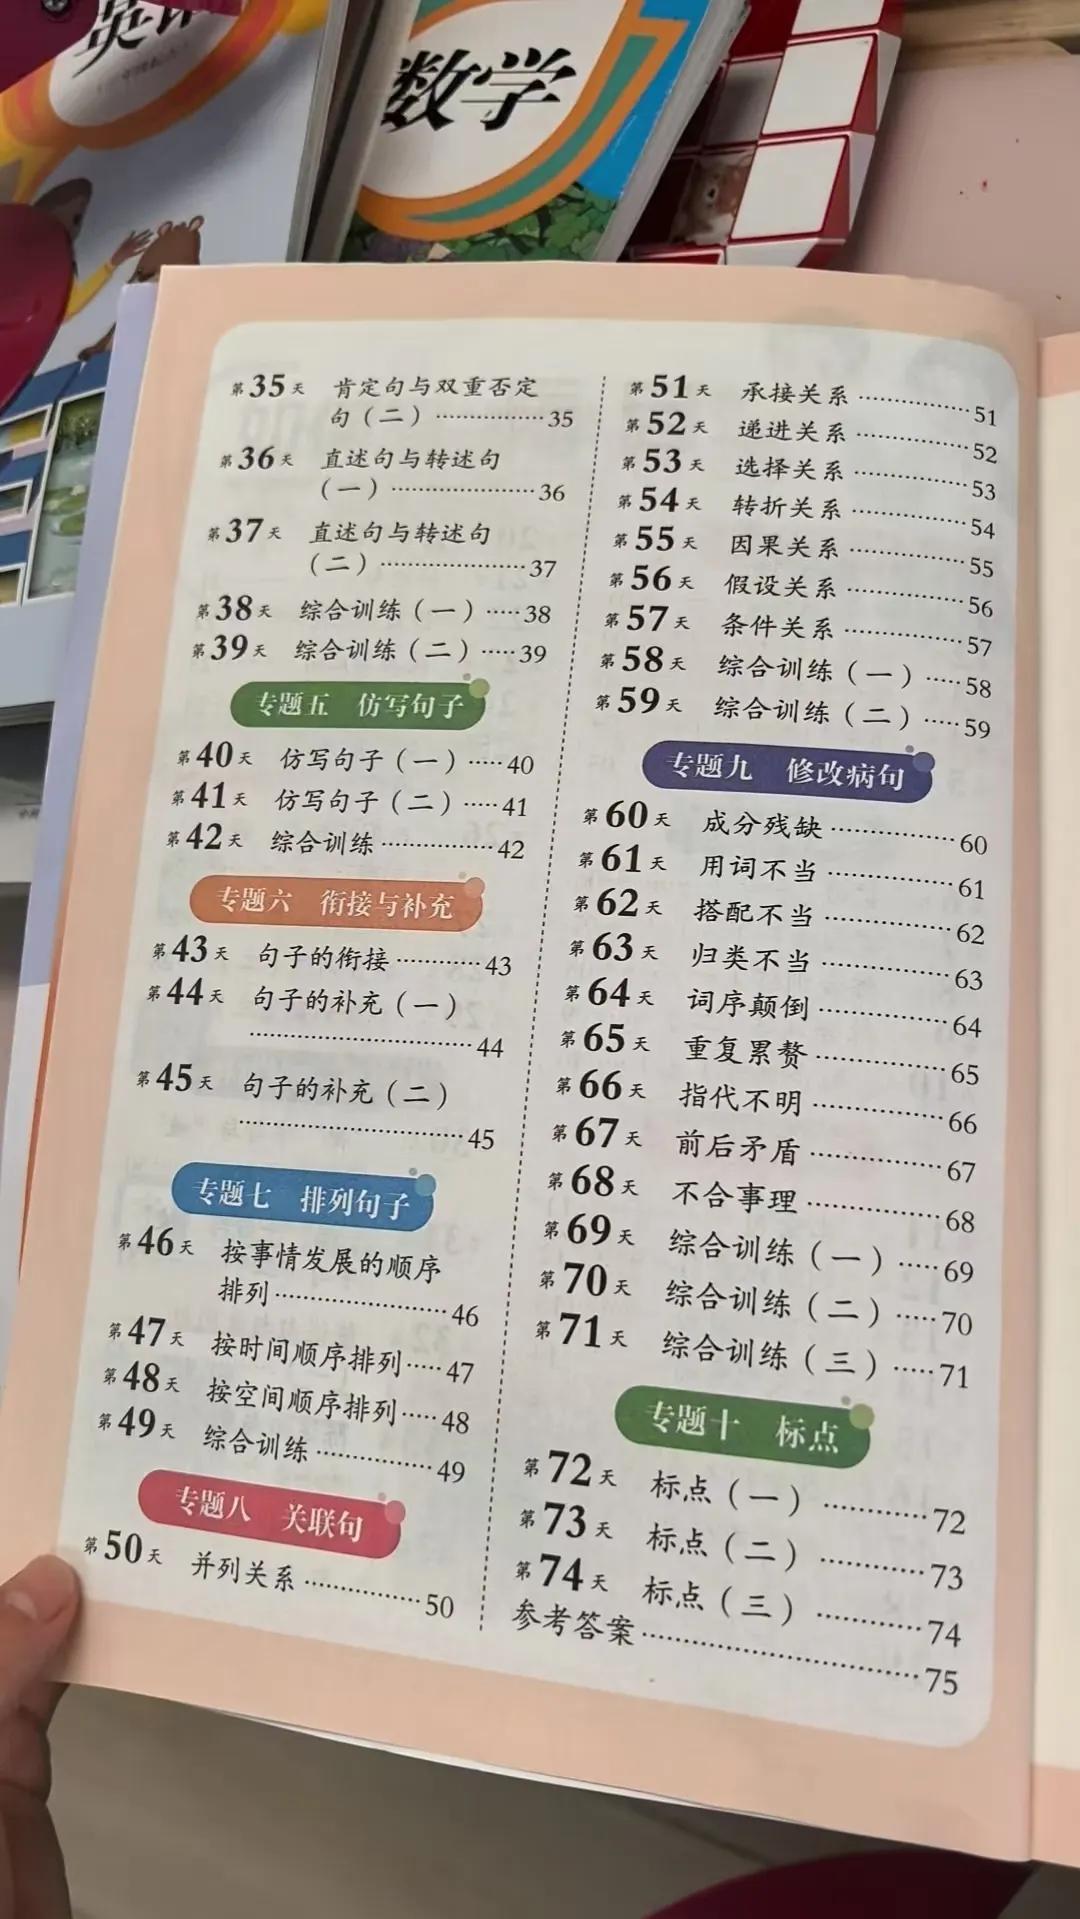 数学
第35天 肯定句与双重否定
句（二）················35
第36天 直述句与转述句
（一）·····················36
第37天 直述句与转述句
（二）·····················37
第38天 综合训练（一）·····38
第39天 综合训练（二）·····39
专题五 仿写句子
第40天 仿写句子（一）·····40
第41天 仿写句子（二）·····41
第42天 综合训练················42
专题六 衔接与补充
第43天 句子的衔接············43
第44天 句子的补充（一）
································44
第45天 句子的补充（二）
································45
专题七 排列句子
第46天 按事情发展的顺序
排列·························46
第47天 按时间顺序排列·····47
第48天 按空间顺序排列·····48
第49天 综合训练················49
专题八 关联句
第50天 并列关系················50
第51天 承接关系················51
第52天 递进关系················52
第53天 选择关系················53
第54天 转折关系················54
第55天 因果关系················55
第56天 假设关系················56
第57天 条件关系················57
第58天 综合训练（一）·····58
第59天 综合训练（二）·····59
专题九 修改病句
第60天 成分残缺················60
第61天 用词不当················61
第62天 搭配不当················62
第63天 归类不当················63
第64天 词序颠倒················64
第65天 重复累赘················65
第66天 指代不明················66
第67天 前后矛盾················67
第68天 不合事理················68
第69天 综合训练（一）·····69
第70天 综合训练（二）·····70
第71天 综合训练（三）·····71
专题十 标点
第72天 标点（一）·············72
第73天 标点（二）·············73
第74天 标点（三）·············74
参考答案·································75